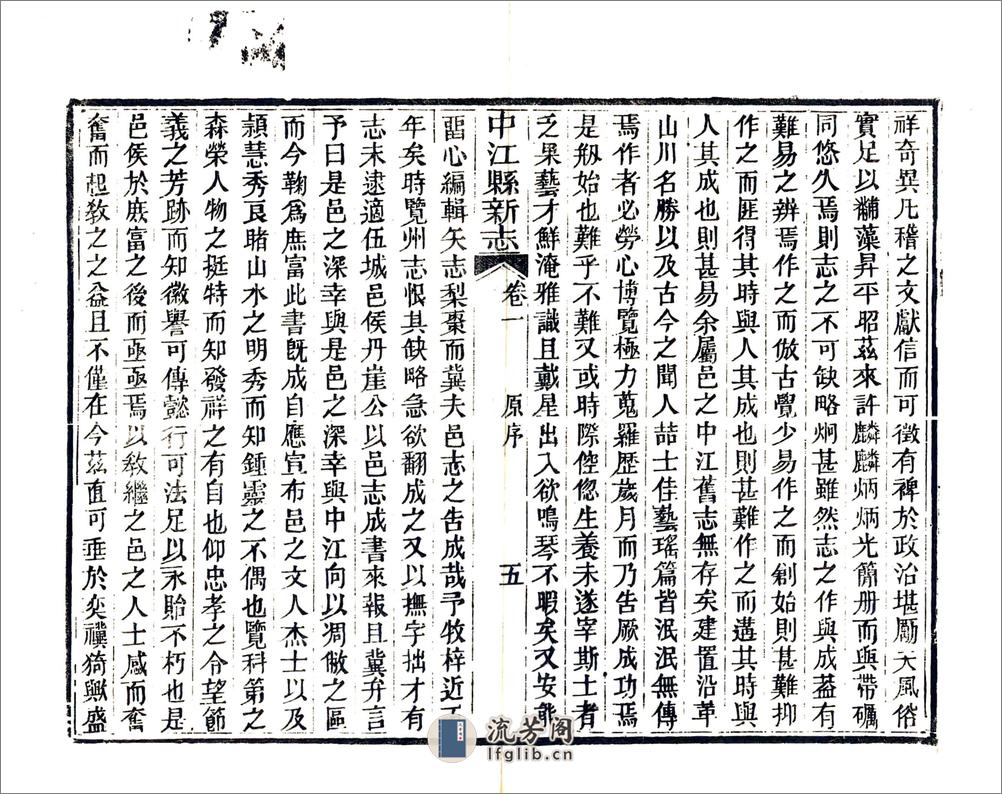 祥奇異凡稽之文獻信而可徵有裨於政治堪勵夫風俗
實足以黼藻昇平昭茲來許麟麟炳炳光簡册而與帶礪
同悠久焉則志之不可缺略炯甚雖然志之作與成葢有
難易之辨焉作之而倣古覺少易作之而創始則甚難抑
作之而匪得其時與人其成也則甚難作之而遘其時與
人其成也則甚易余屬邑之中江舊志無存矣建置沿革
山川名勝以及古今之聞人喆士佳藝瑤篇皆泯泯無傳
焉作者必勞心博覽極力蒐羅歷歲月而乃告厥成功焉
是剏始也難乎不難又或時際倥偬生養未遂宰斯土者
乏果藝才鮮淹雅識且戴星出入欲鳴琴不暇矣又安能
中江縣新志 卷一 原序 五
畱心編輯矢志梨棗而冀夫邑志之告成哉予牧梓近
年矣時覽州志恨其缺略急欲翻成之又以撫字拙才有
志未逮適伍城邑侯丹崖公以邑志成書來報且冀弁言
予曰是邑之深幸與是邑之深幸與中江向以凋敝之區
而今鞠爲庶富此書旣成自應宣布邑之文人杰士以及
頴慧秀良睹山水之明秀而知鍾靈之不偶也覽科第之
森榮人物之挺特而知發祥之有自也仰忠孝之令望節
義之芳跡而知徽譽可傳懿行可法足以永貽不朽也是
邑侯於庶富之後而亟亟焉以敎繼之邑之人士感而奮
奮而起敎之之益且不僅在今茲直可垂於奕禩猗歟盛
流芳阁
lfglib.cn